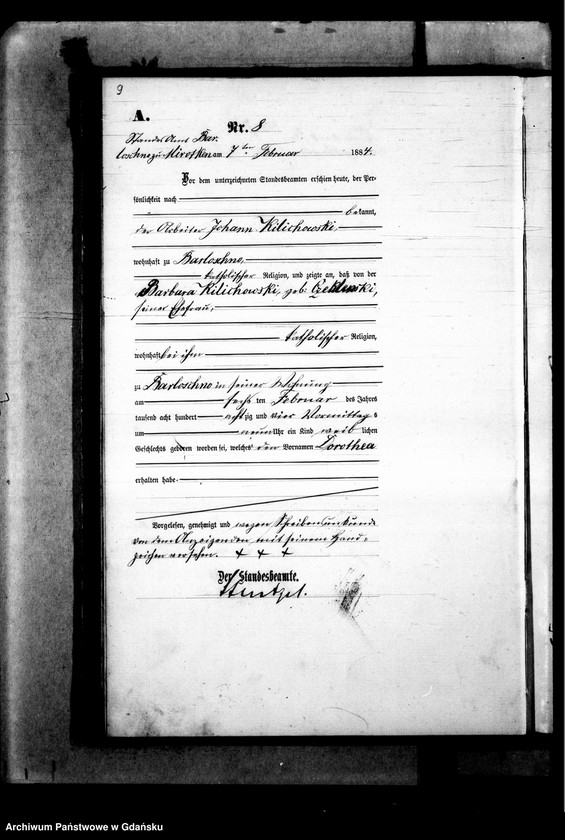 9
A.
Nr. 8
Standes Amt Bar-
loschno zu Mirotken am 7ten Februar 1884.
Vor dem unterzeichneten Standesbeamten erschien heute, der Per-
sönlichkeit nach
bekannt,
der Arbeiter Johann Kilichowski,
wohnhaft zu Barloschno,
katholischer Religion, und zeigte an, daß von der
Barbara Kilichowski, geb.
seiner Ehefrau,
katholischer Religion,
wohnhaft bei ihm
zu Barloschno in seiner Wohnung
am sechs ten Februar des Jahres
tausend acht hundert achtzig und vier Vormittags
um neun Uhr ein Kind weib lichen
Geschlechts geboren worden sei, welches den Vornamen Dorothea
erhalten habe.
Vorgelesen, genehmigt und wegen Schreibensunkunde
von dem Anzeigenden mit seinem Hand-
zeichen versehen. + + +
Der Standesbeamte.
Archiwum Państwowe w Gdańsku